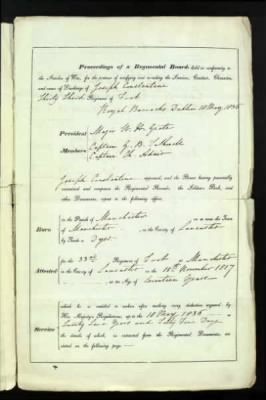 Proceedings of a Regimental Board, held in conformity to
the Articles of War, for the purpose of verifying and recording the Services, Conduct, Character,
and cause of Discharge of Joseph
Thirty Third Regiment of Foot
Royal Barracks Dublin 10 May 1836
President Major W. H.
Members Captain G. B.
Captain Th
Joseph appeared, and the Board having personally
examined and compared the Regimental Records, the Soldier's Book, and
other Documents, report to the following effect.
Born in the Parish of Manchester in or near the Town
of Manchester in the County of Lancaster
by Trade a Dyer
Attested for the 33rd Regiment of Foot at Manchester
in the County of Lancaster on the 18th November 1817
at the Age of Years
Service which he is entitled to reckon after making every deduction required by
His Majesty's Regulations, up to the 10 May 1836 is
Years and Days
the details of which, as extracted from the Regimental Documents, are
stated on the following page